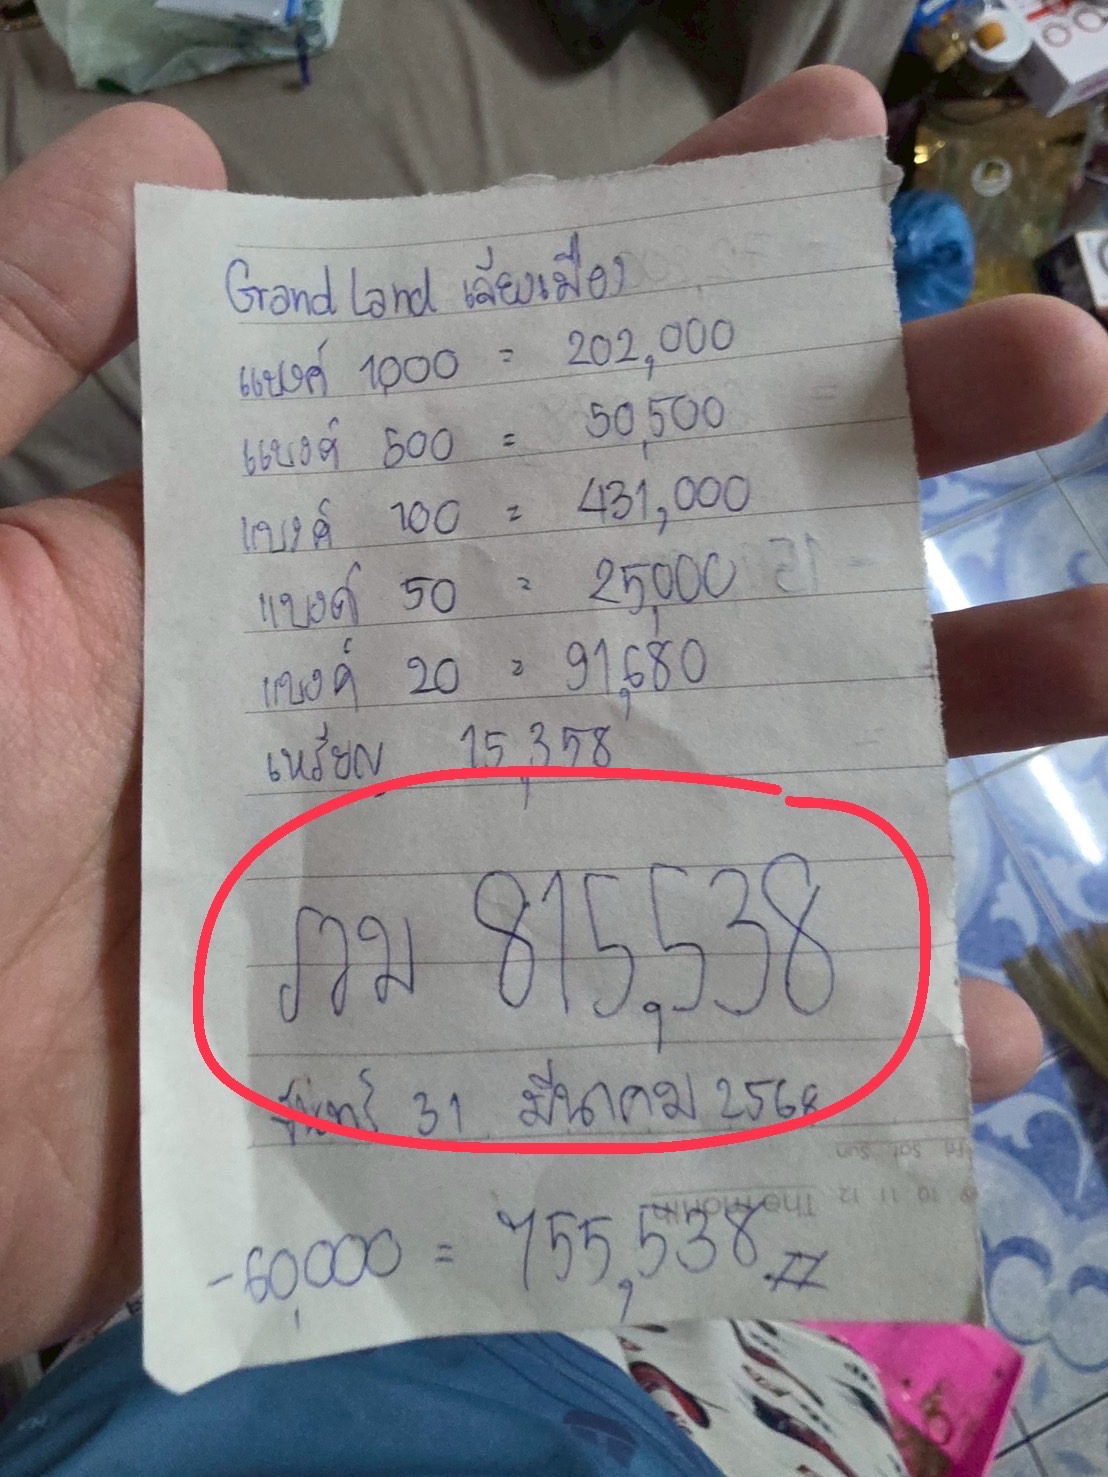 Grand Land เลี่ยงเมือง
แบงค์ 1000 = 202,000
แบงค์ 500 = 50,500
แบงค์ 100 = 431,000
แบงค์ 50 = 25,000
แบงค์ 20 = 91,680
เหรียญ 15,358
รวม 815,538
จันทร์ 31 มีนาคม 2568
-60,000 = 755,538